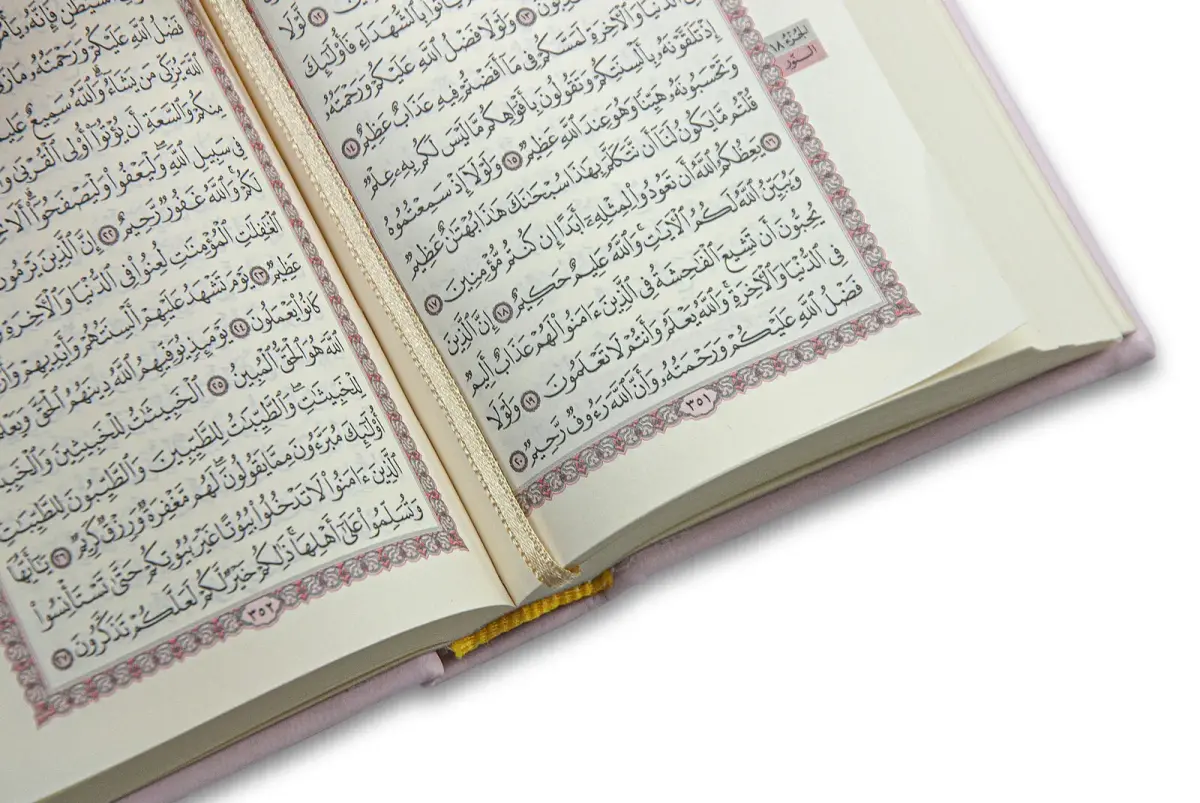 ١٢ لَّوْلَا
بِٱلشُّهَدَآءِ فَأُوْلَٰٓئِكَ
١٣ وَلَوْلَا فَضْلُ ٱللَّهِ عَلَيْكُمْ وَرَحْمَتُهُۥ
ٱلدُّنْيَا وَٱلْأٓخِرَةِ لَمَسَّكُمْ فِي مَآ أَفَضْتُمْ فِيهِ عَذَابٌ عَظِيمٌ ١٤
إِذْ تَلَقَّوْنَهُۥ بِأَلْسِنَتِكُمْ وَتَقُولُونَ بِأَفْوَاهِكُم مَّا لَيْسَ لَكُم بِهِۦ عِلْمٌ
وَتَحْسَبُونَهُۥ هَيِّنًا وَهُوَ عِندَ ٱللَّهِ عَظِيمٌ ١٥ وَلَوْلَآ إِذْ سَمِعْتُمُوهُ
قُلْتُم مَّا يَكُونُ لَنَآ أَن نَّتَكَلَّمَ بِهَٰذَا سُبْحَٰنَكَ هَٰذَا بُهْتَٰنٌ عَظِيمٌ
١٦ يَعِظُكُمُ ٱللَّهُ أَن تَعُودُواْ لِمِثْلِهِۦٓ أَبَدًا إِن كُنتُم مُّؤْمِنِينَ ١٧
وَيُبَيِّنُ ٱللَّهُ لَكُمُ ٱلْأٓيَٰتِۚ وَٱللَّهُ عَلِيمٌ حَكِيمٌ ١٨ إِنَّ ٱلَّذِينَ
يُحِبُّونَ أَن تَشِيعَ ٱلْفَٰحِشَةُ فِي ٱلَّذِينَ ءَامَنُواْ لَهُمْ عَذَابٌ أَلِيمٌ
فِي ٱلدُّنْيَا وَٱلْأٓخِرَةِۚ وَٱللَّهُ يَعْلَمُ وَأَنتُمْ لَا تَعْلَمُونَ ١٩ وَلَوْلَا
فَضْلُ ٱللَّهِ عَلَيْكُمْ وَرَحْمَتُهُۥ وَأَنَّ ٱللَّهَ رَءُوفٌ رَّحِيمٌ ٢٠
٣٥١
الجزء ١٨
النور
ٱلشَّيْطَٰنِ فَإِنَّهُۥ
فَضْلُ ٱللَّهِ عَلَيْكُمْ وَرَحْمَتُهُۥ مَا
ٱللَّهَ يُزَكِّي مَن يَشَآءُۗ وَٱللَّهُ سَمِيعٌ
مِنكُمْ وَٱلسَّعَةِ أَن يُؤْتُوٓاْ أُوْلِي ٱلْقُرْبَىٰ
فِي سَبِيلِ ٱللَّهِۖ وَلْيَعْفُواْ وَلْيَصْفَحُوٓاْۗ أَلَا
لَكُمْۚ وَٱللَّهُ غَفُورٌ رَّحِيمٌ ٢٢ إِنَّ ٱلَّذِينَ يَرْمُونَ
ٱلْغَٰفِلَٰتِ ٱلْمُؤْمِنَٰتِ لُعِنُواْ فِي ٱلدُّنْيَا وَٱلْأٓخِرَةِ
عَظِيمٌ ٢٣ يَوْمَ تَشْهَدُ عَلَيْهِمْ أَلْسِنَتُهُمْ وَأَيْدِيهِمْ
كَانُواْ يَعْمَلُونَ ٢٤ يَوْمَئِذٍ يُوَفِّيهِمُ ٱللَّهُ دِينَهُمُ ٱلْحَقَّ
ٱللَّهَ هُوَ ٱلْحَقُّ ٱلْمُبِينُ ٢٥ ٱلْخَبِيثَٰتُ لِلْخَبِيثِينَ
لِلْخَبِيثَٰتِۖ وَٱلطَّيِّبَٰتُ لِلطَّيِّبِينَ وَٱلطَّيِّبُونَ لِلطَّيِّبَٰتِۚ
أُوْلَٰٓئِكَ مُبَرَّءُونَ مِمَّا يَقُولُونَۖ لَهُم مَّغْفِرَةٌ وَرِزْقٌ كَرِيمٌ ٢٦ يَٰٓأَيُّهَا
ٱلَّذِينَ ءَامَنُواْ لَا تَدْخُلُواْ بُيُوتًا غَيْرَ بُيُوتِكُمْ حَتَّىٰ تَسْتَأْنِسُواْ
وَتُسَلِّمُواْ عَلَىٰٓ أَهْلِهَاۚ ذَٰلِكُمْ خَيْرٌ لَّكُمْ لَعَلَّكُمْ تَذَكَّرُونَ ٢٧
٣٥٢